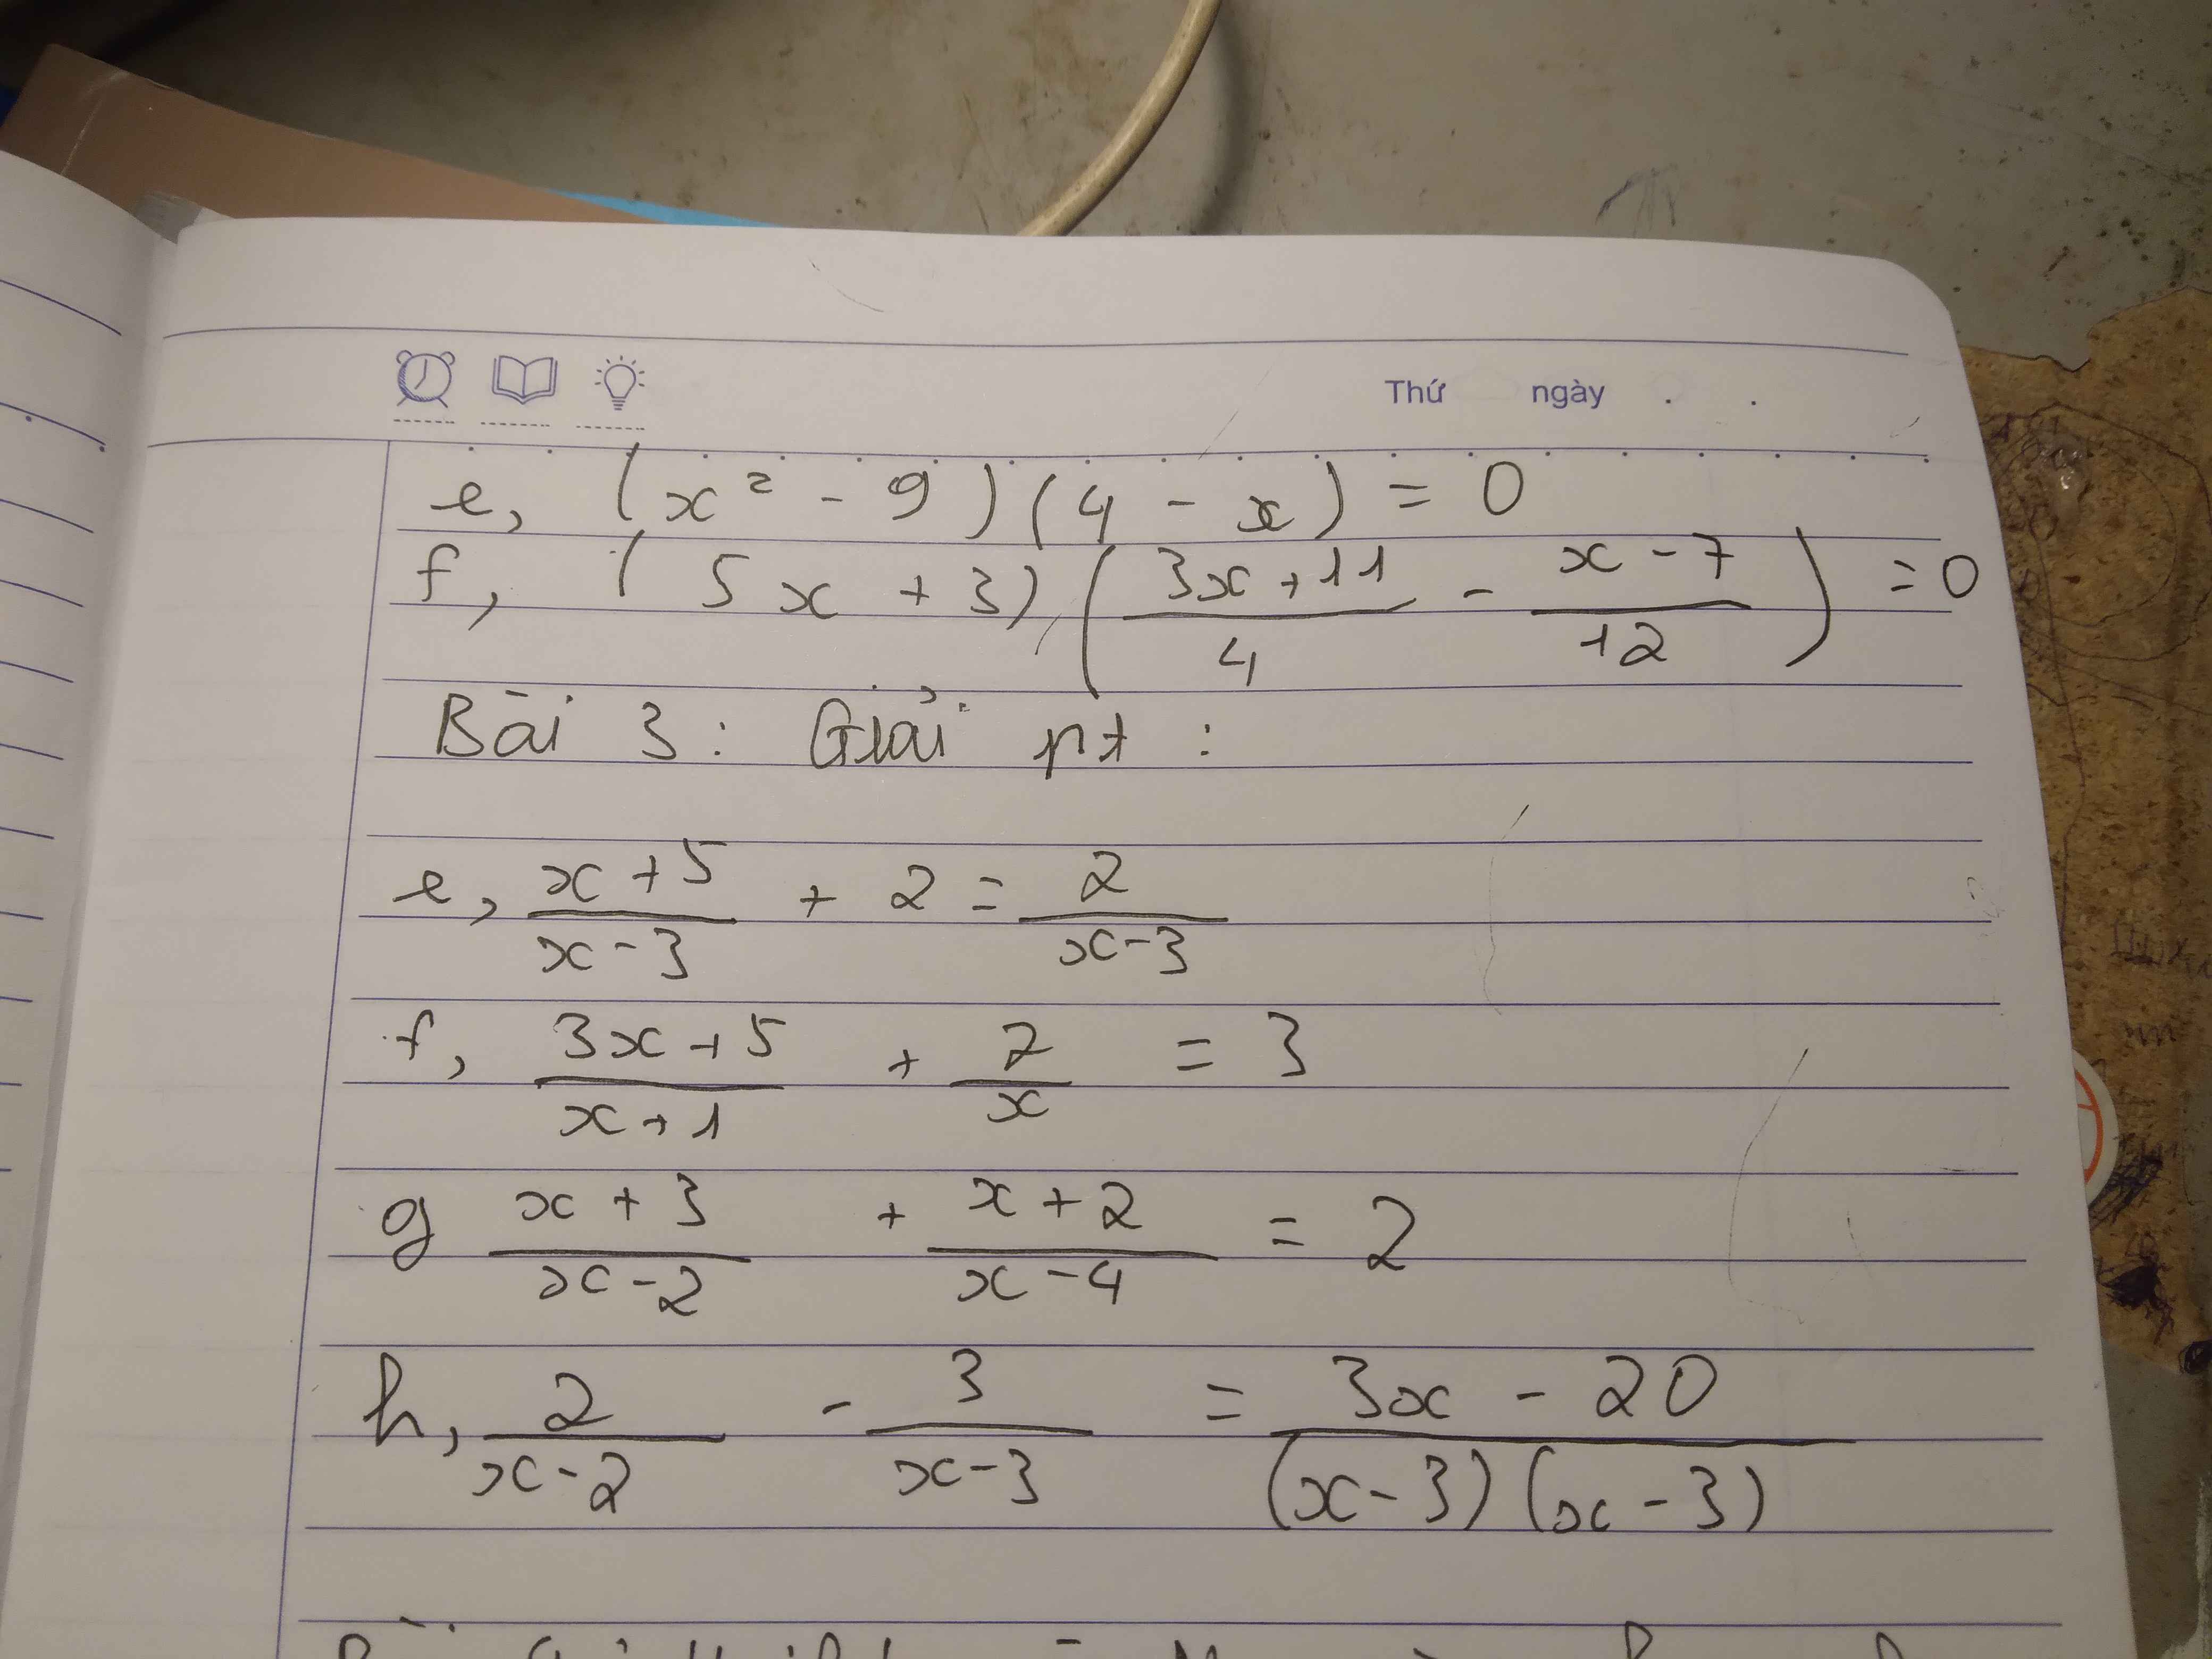 Thứ ngày . .
e, (x² - 9)(4 - x) = 0
f, (5x + 3)((3x+11)/4 - (x-7)/12) = 0
Bài 3: Giải pt:
e, (x+5)/(x-3) + 2 = 2/(x-3)
f, (3x+5)/(x+1) + 2/x = 3
g (x+3)/(x-2) + (x+2)/(x-4) = 2
h, 2/(x-2) - 3/(x-3) = (3x-20)/((x-3)(x-3))